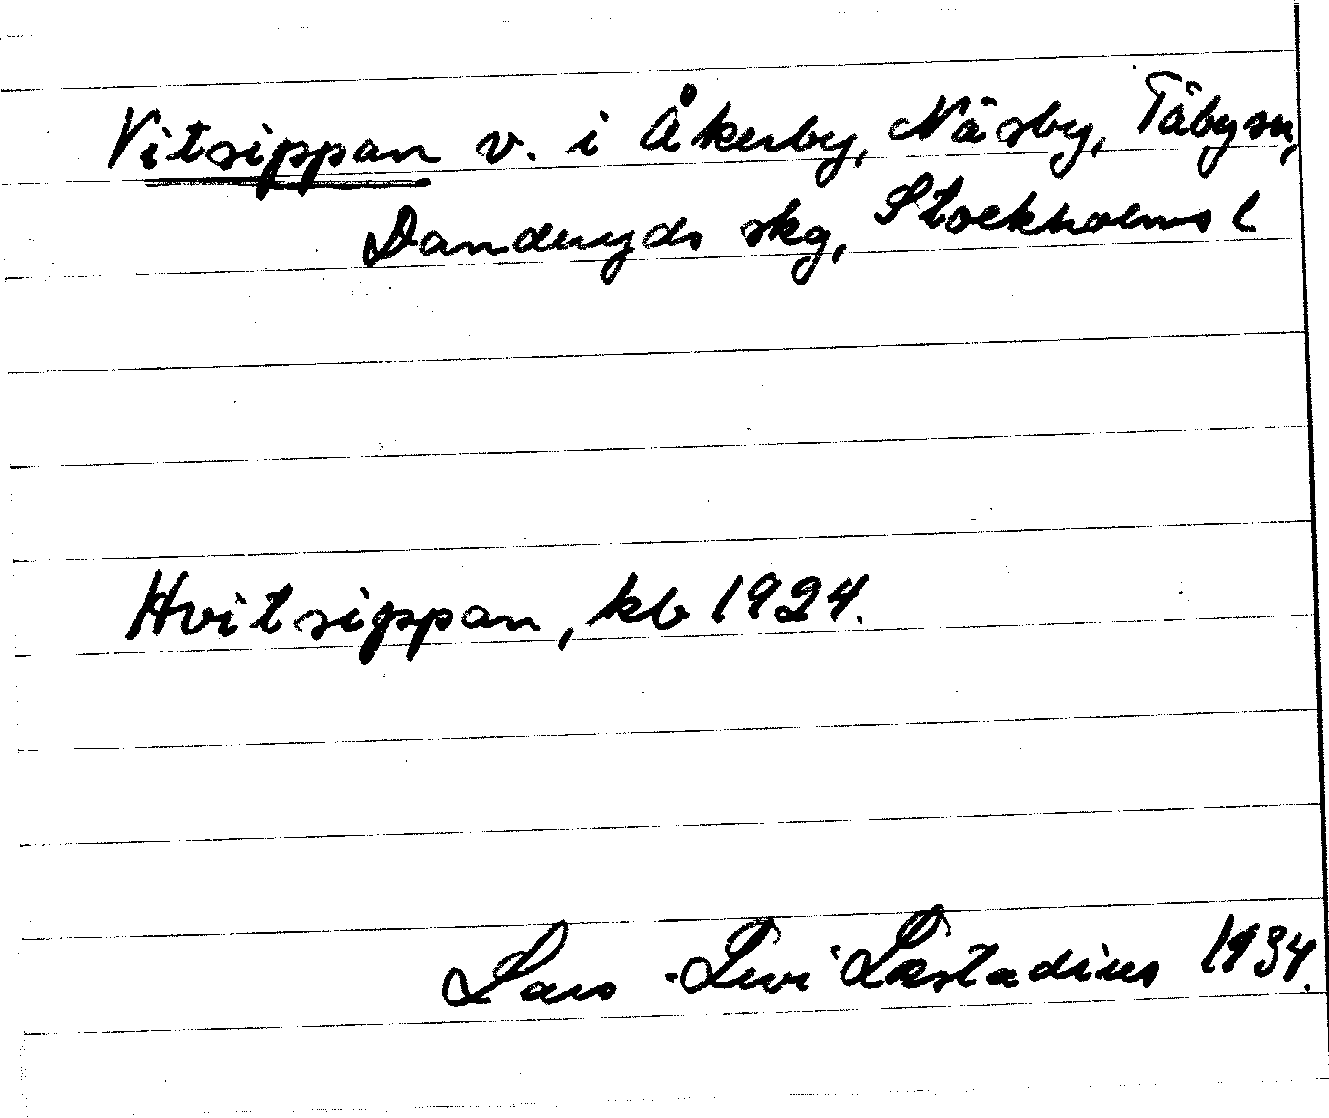 Vitsippan v. i Åkerby, Näsby, Täby sn,
Danderyds skg, Stockholms l
Hvitsippan, kb 1924.
Lars-Levi Læstadius 1934.